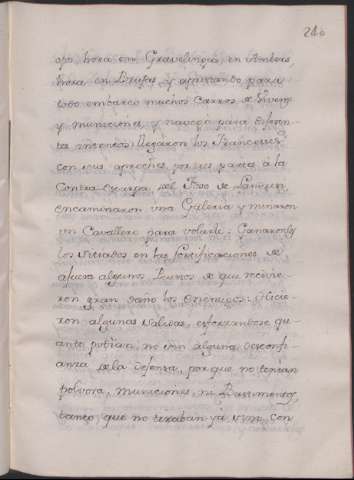 240
ora en Gravelingas, en Amberes,
hora en Brujas, y aprestando para
todo embarco muchos Carros de Viveres
y municiones, y navegò para diferen-
tes intentos: llegaron los Franceses
con sus aproches por tres partes à la
Contra escarpa del Foso de
encaminaron una Galeria y minaron
un Cavallero para volarle: Ganaronse
los sitiados en las fortificaciones de
afuera algunos puntos de que recivie-
ron gran daño los Enemigos: Hicie-
ron algunas salidas, esforzandose qu-
anto podian, no sin alguna desconfi-
anza de la defensa, porque no tenian
polvora, municiones, ni Bastimentos,
tanto, que no tiraban ya sino con